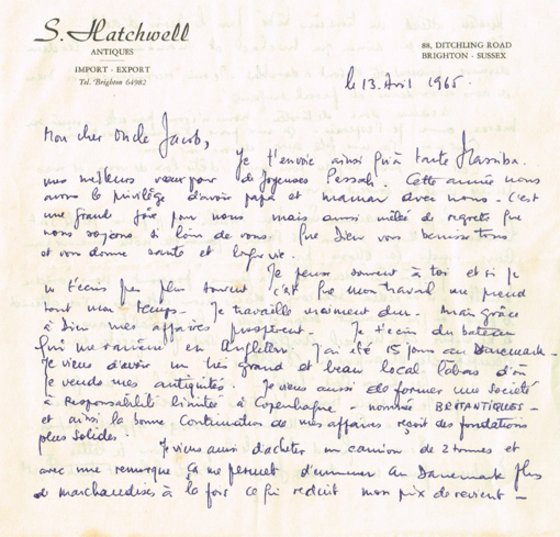 S. Hatchwell
ANTIQUES
IMPORT - EXPORT
Tel. Brighton 64982
88, DITCHLING ROAD
BRIGHTON - SUSSEX
le 13. Avril 1965.
Mon cher Oncle Jacob,
Je t'envoie ainsi qu'à tante Messiba
mes meilleurs vœux pour de Joyeuses Pessah. Cette année nous
avons le privilège d'avoir papa et maman avec nous - c'est
une grande joie pour nous mais aussi mêlée de regrets que
nous soyons si loin de vous. Que Dieu vous bénisse tous
et vous donne santé et longue vie.
Je pense souvent à toi et si je
n'écris pas plus souvent c'est que mon travail me prend
tout mon temps - Je travaille vraiment dur. Mais grâce
à Dieu mes affaires prospèrent - Je t'écris du bateau
qui me ramène en Angleterre. J'ai été 15 jours au Danemark -
Je viens d'avoir un très grand et beau local là bas d'où
je vends mes antiquités. Je viens aussi de former une société
à Responsabilité limitée à Copenhague - nommée BRITANTIQUES -
et ainsi la bonne continuation de mes affaires reçoit des fondations
plus solides.
Je viens aussi d'acheter un camion de 2 tonnes et
avec une remorque ça me permet d'emmener au Danemark plus
de marchandises à la fois ce qui réduit mon prix de revient -